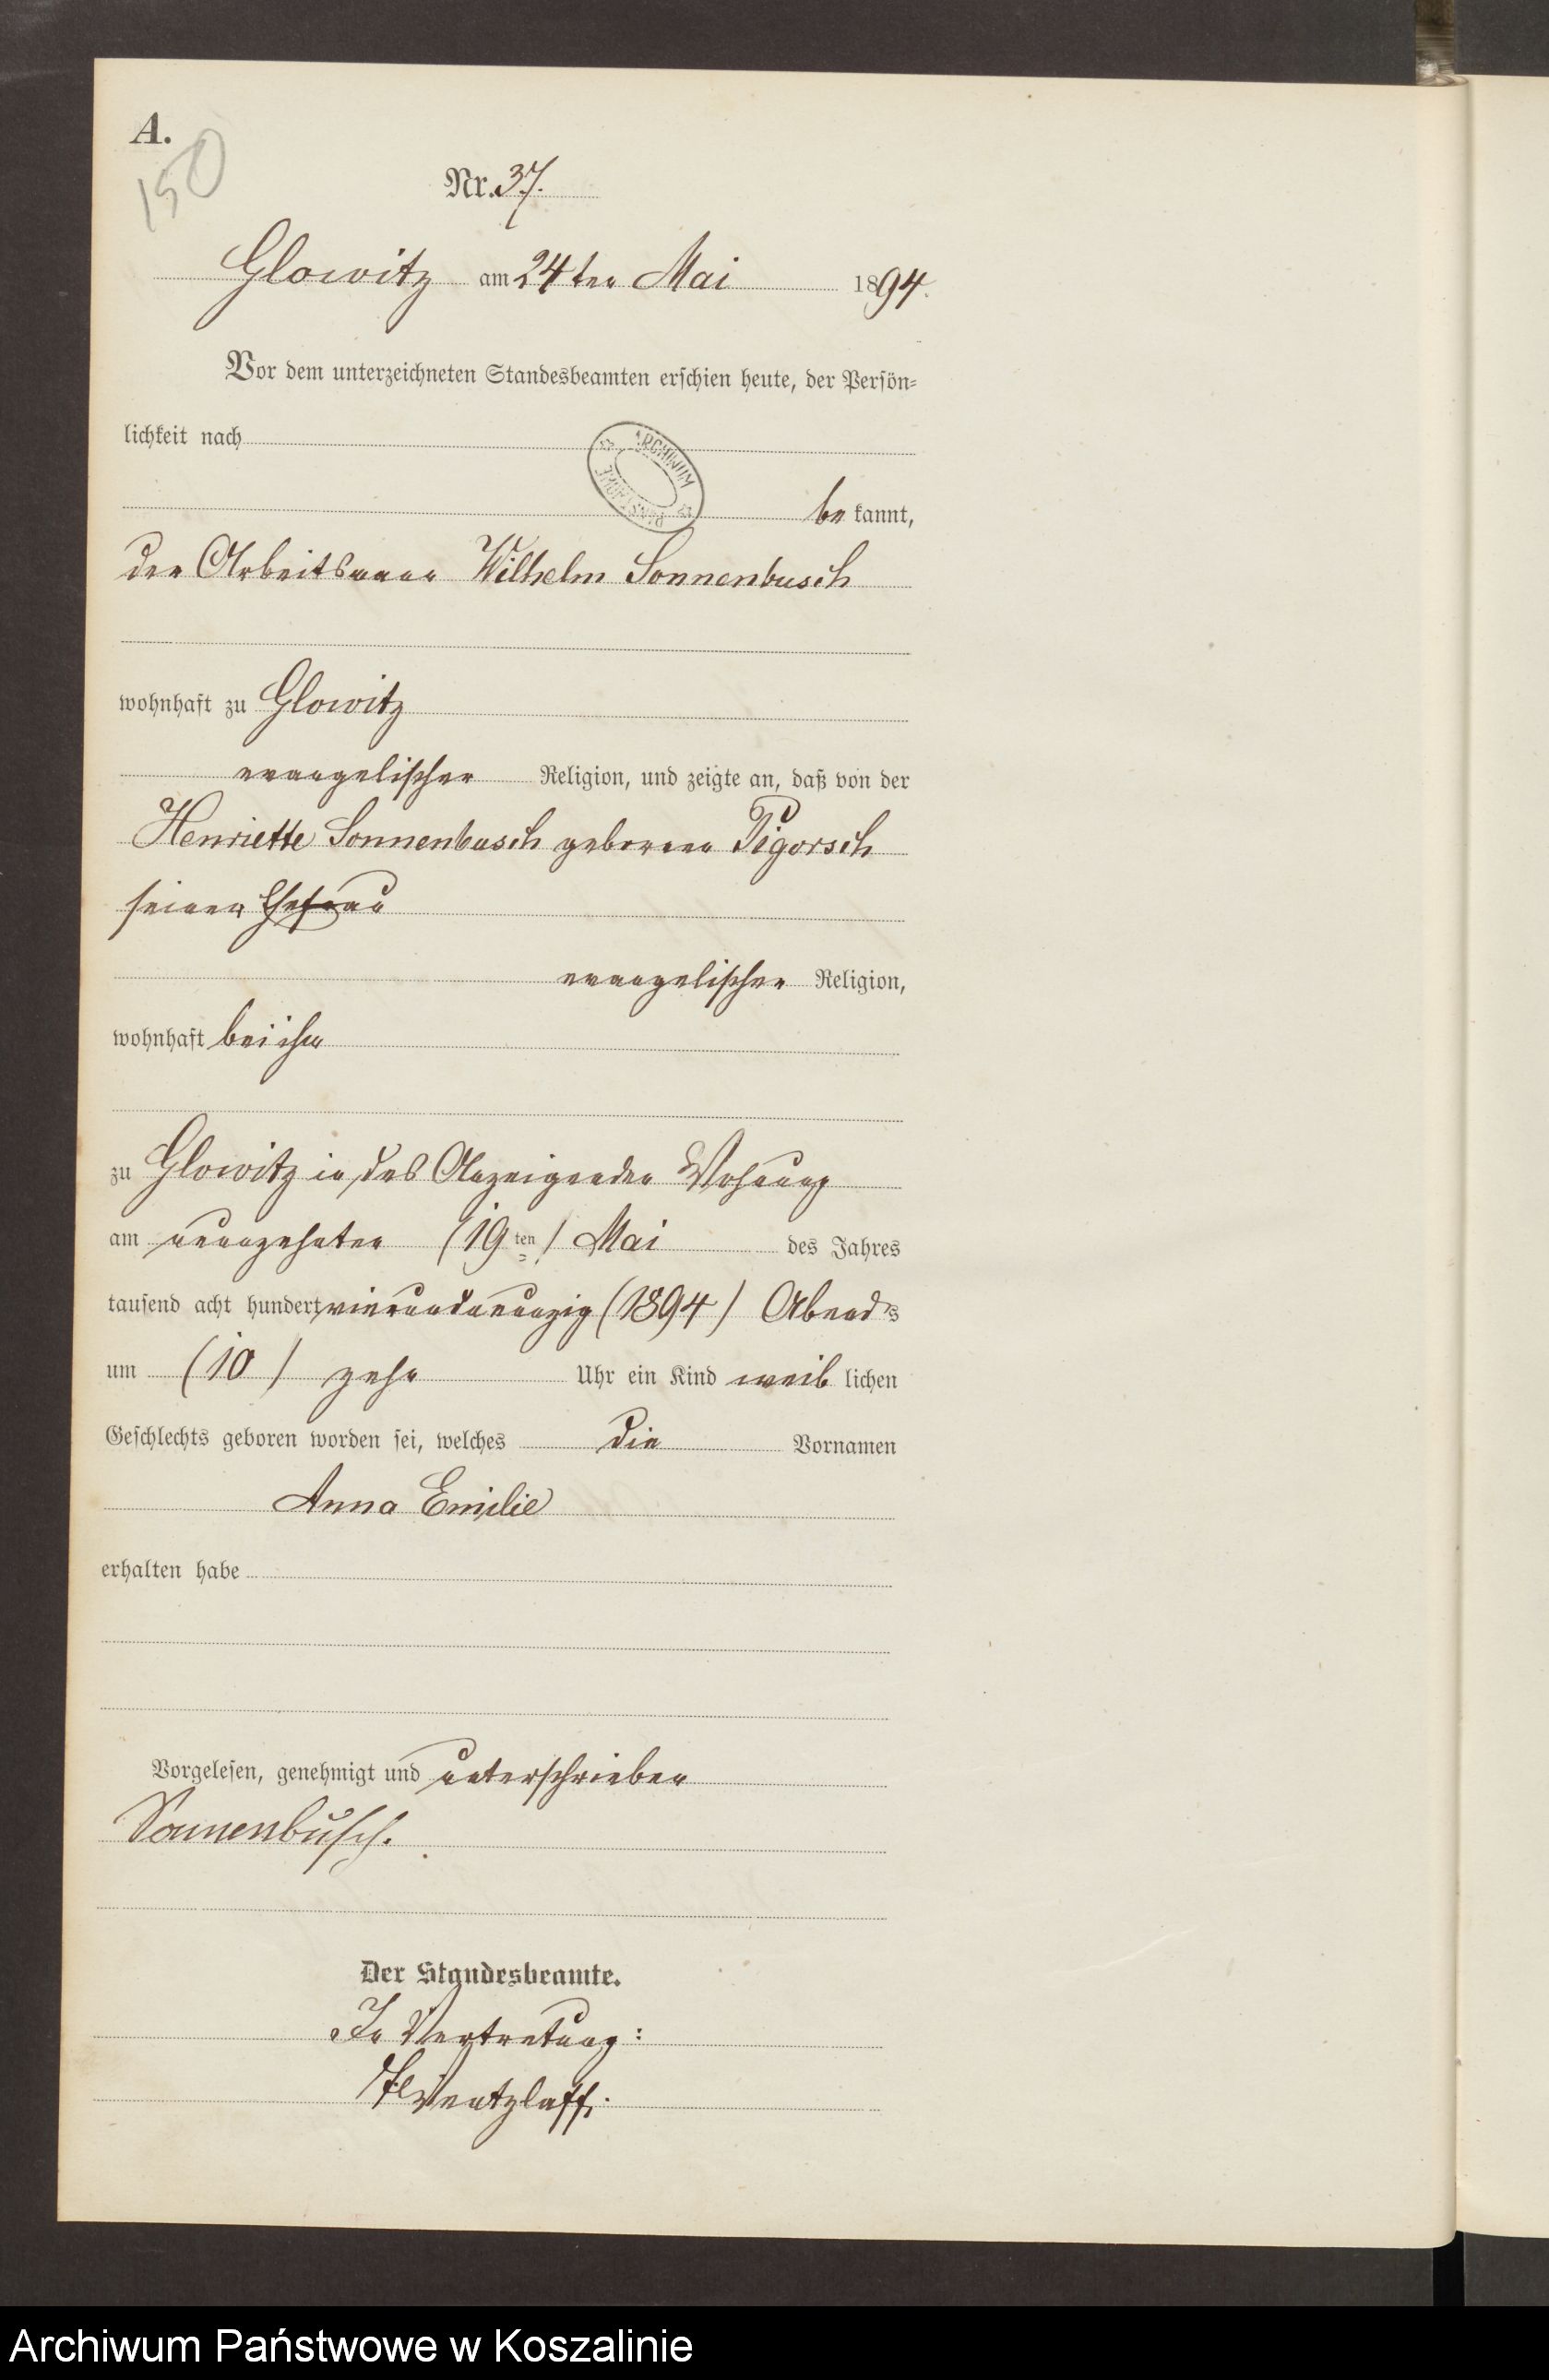 A.
150
Nr. 37.
Glowitz am 24ten Mai 1894.
Vor dem unterzeichneten Standesbeamten erschien heute, der Persön-
lichkeit nach
ARCHIWUM
be kannt,
der Arbeitsmann Wilhelm Sonnenbusch
wohnhaft zu Glowitz
evangelischer Religion, und zeigte an, daß von der
Henriette Sonnenbusch geborenen Pigorsch
seiner Ehefrau
evangelischer Religion,
wohnhaft bei ihm
zu Glowitz in des Anzeigenden Wohnung
am neunzehnten (19ten) Mai des Jahres
tausend acht hundert vierundneunzig (1894) Abends
um (10) zehn Uhr ein Kind weib lichen
Geschlechts geboren worden sei, welches die Vornamen
Anna Emilie
erhalten habe
Vorgelesen, genehmigt und unterschrieben
Sonnenbusch.
Der Standesbeamte.
In Vertretung:
Wentzlaff.
Archiwum Państwowe w Koszalinie